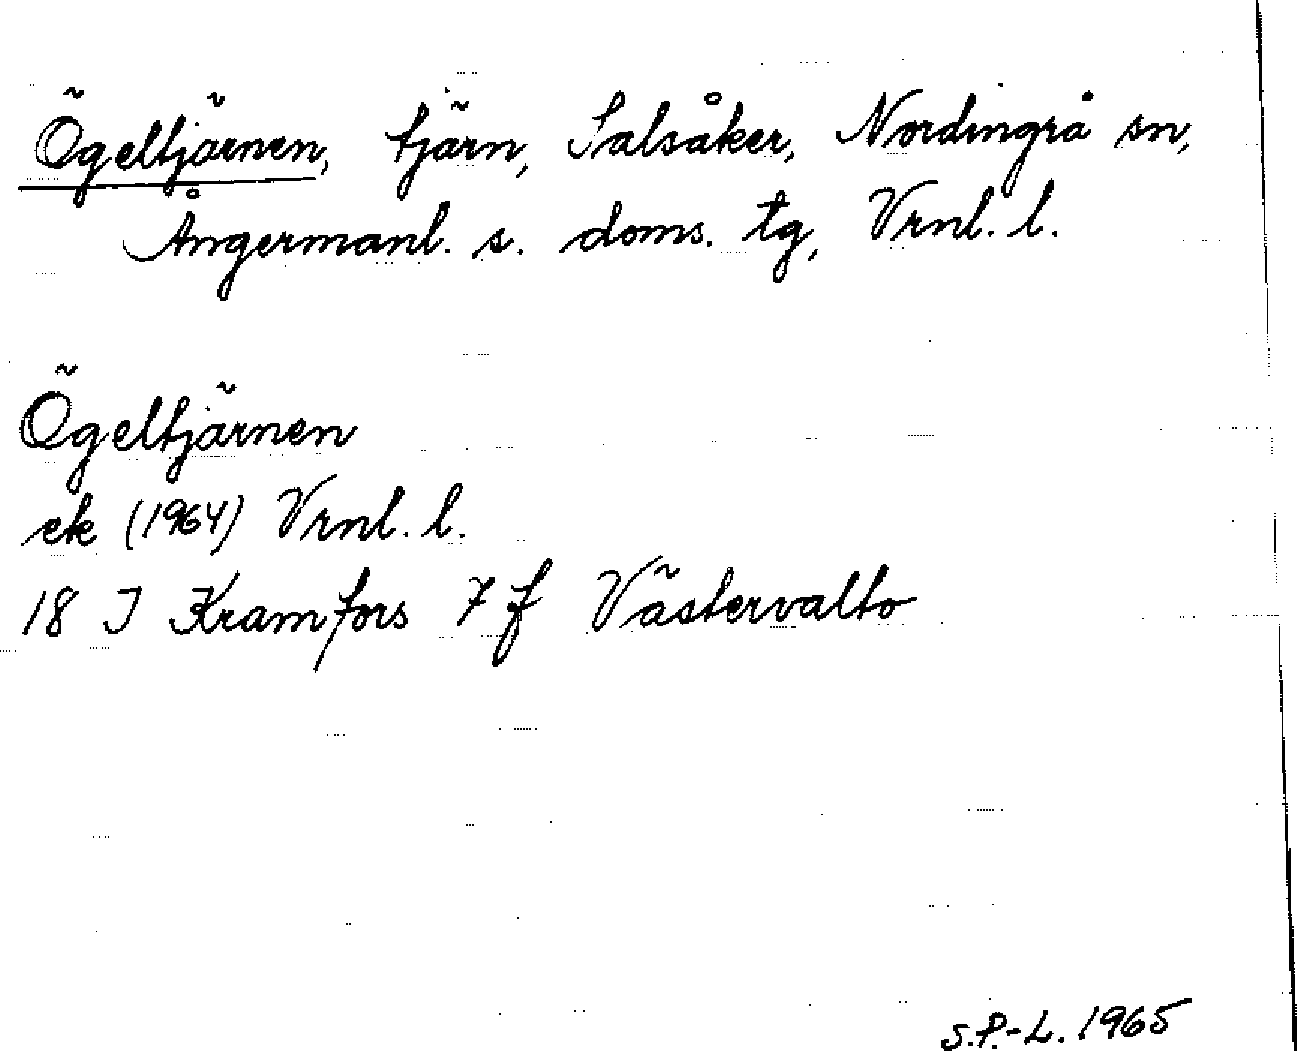 Ögeltjärnen, tjärn, Salsåker, Nordingrå sn,
Ångermanl. s. doms. tg, Vrnl. l.
Ögeltjärnen
ek (1964) Vrnl. l.
18 I Kramfors 7 f Västervalto
S.P.-L. 1965